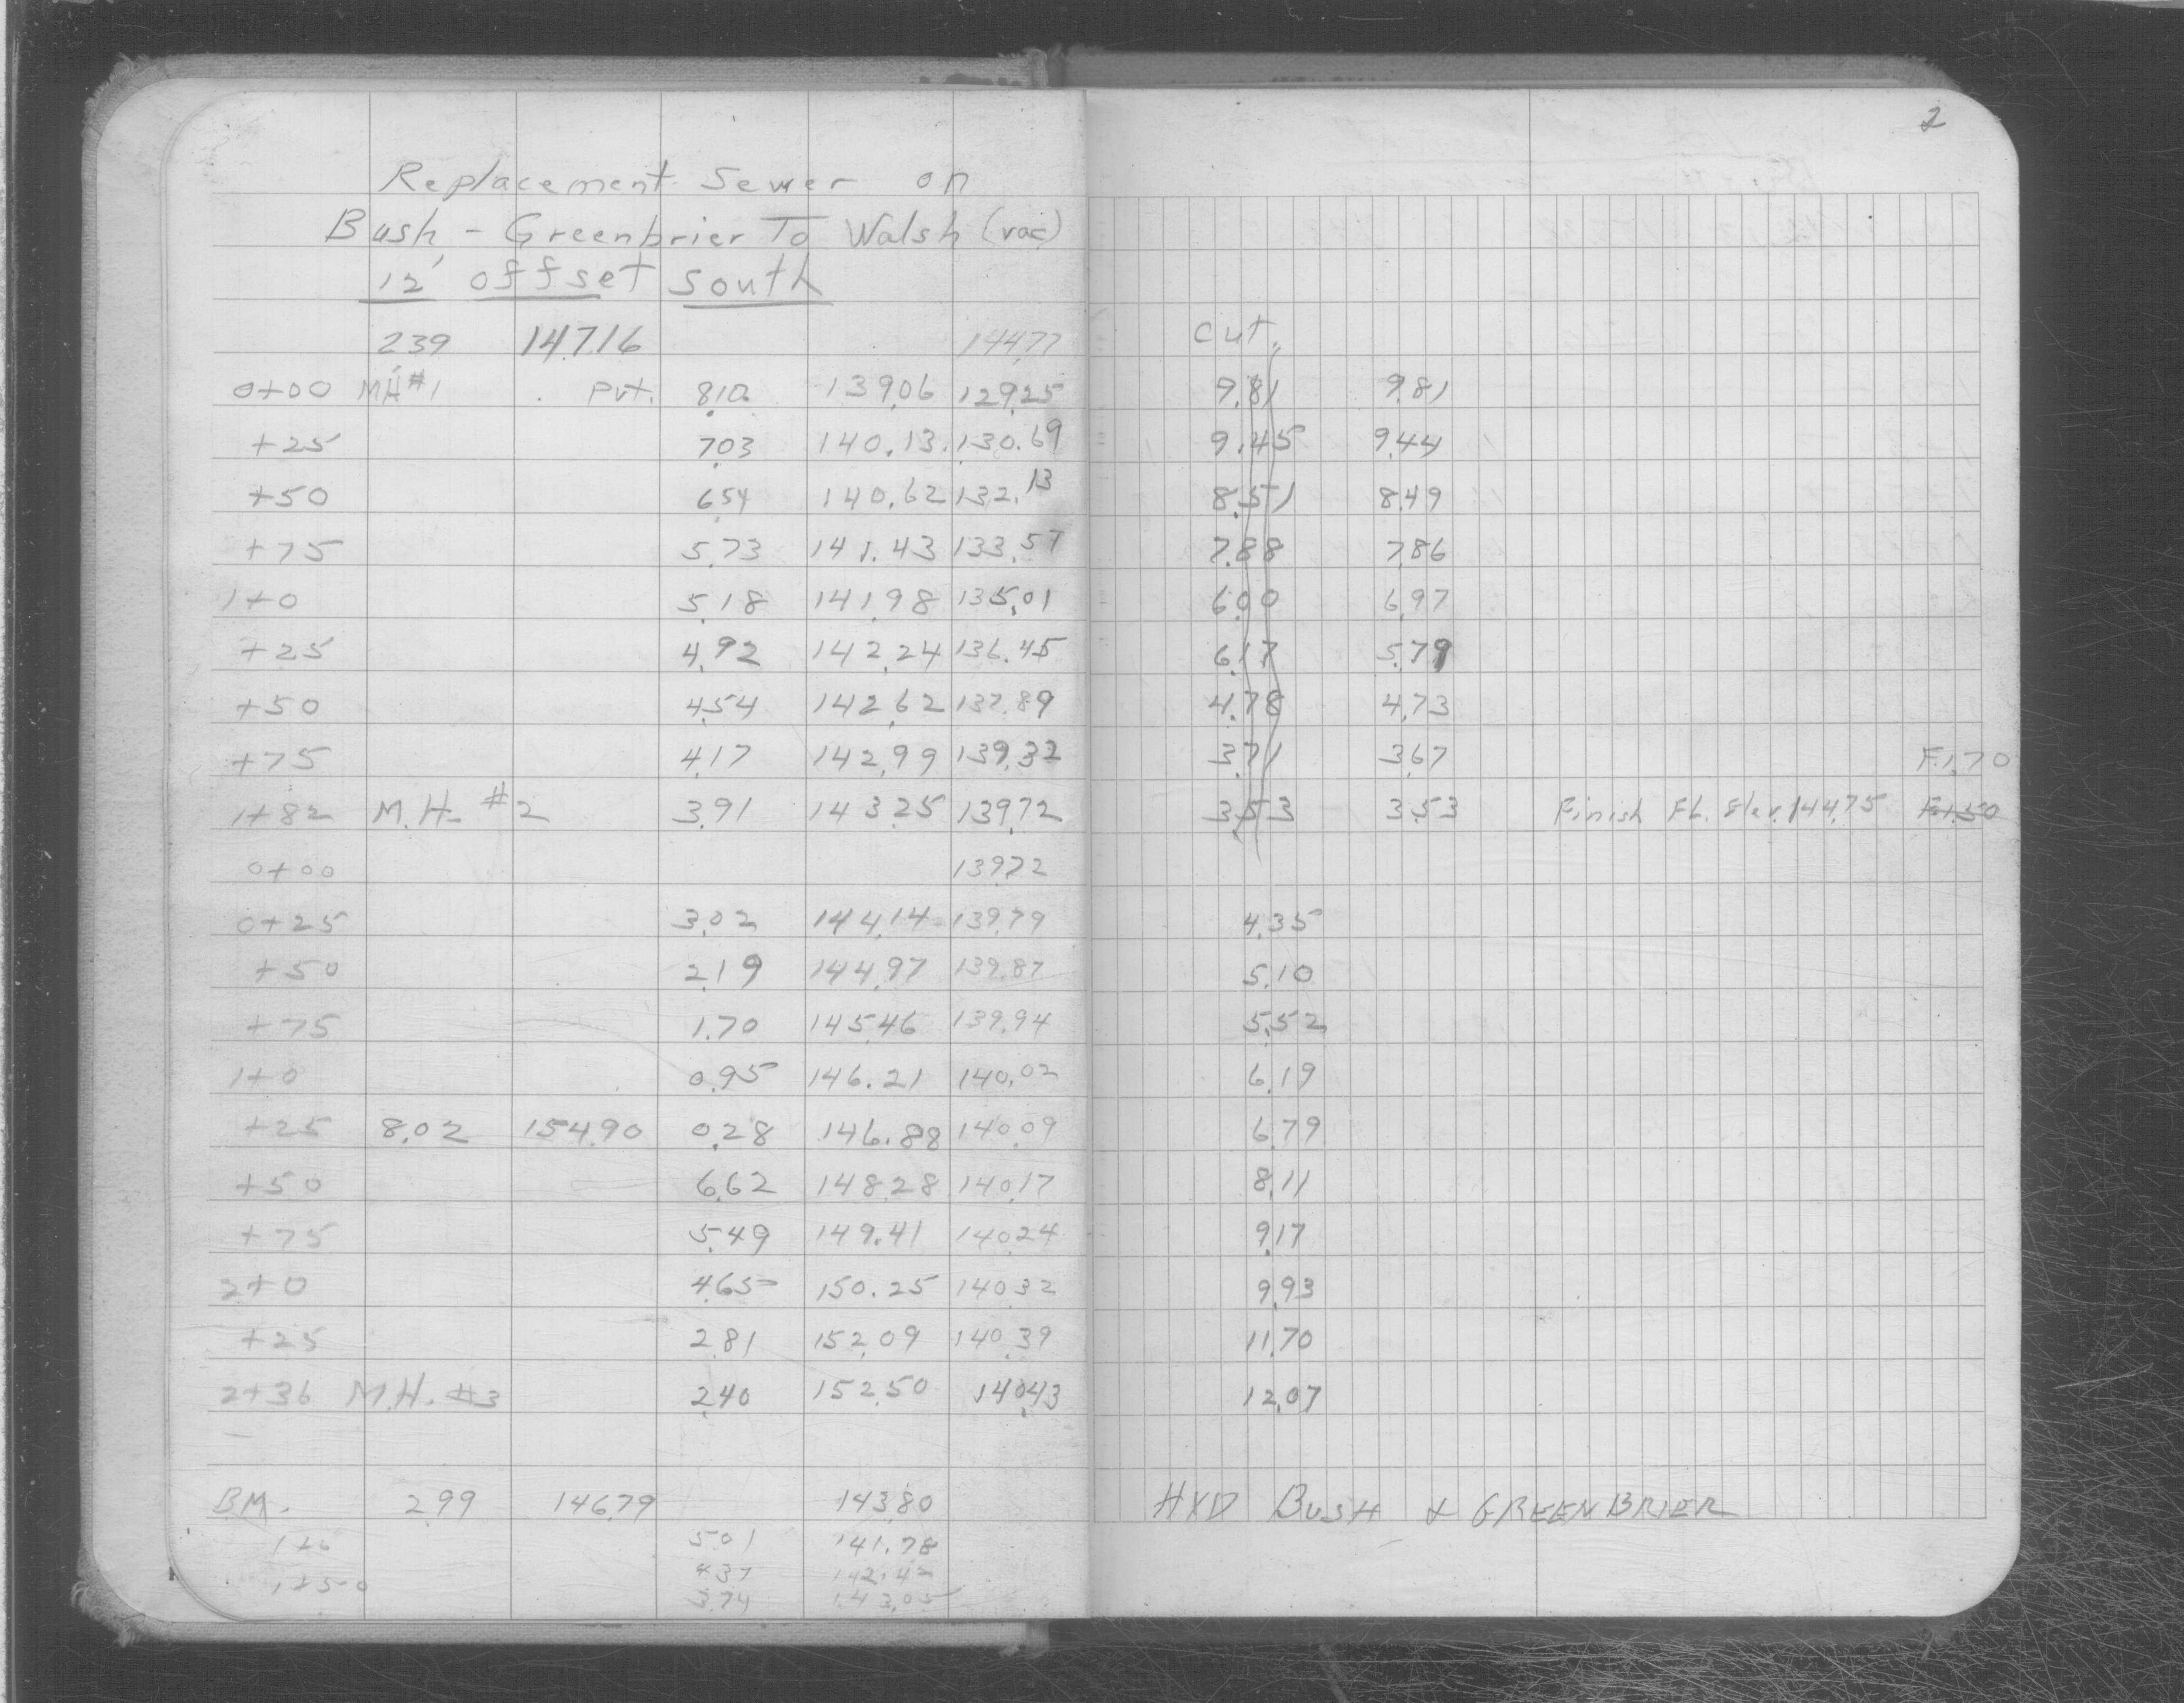 2
Replacement Sewer on
Bush - Greenbrier To Walsh (vac)
12' offset south
2.39 147.16 144.77 cut.
0+00 MH #1 Pvt. 8.10 139.06 129.25 9.81 9.81
+25 7.03 140.13 130.69 9.45 9.44
+50 6.54 140.62 132.13 8.51 8.49
+75 5.73 141.43 133.57 7.88 7.86
1+0 5.18 141.98 135.01 6.00 6.97
+25 4.92 142.24 136.45 6.17 5.79
+50 4.54 142.62 137.89 4.78 4.73
+75 4.17 142.99 139.32 3.71 3.67 F.1.70
1+82 M.H. #2 3.91 143.25 139.72 3.53 3.53 Finish Fl. Elev. 144.75 F.1.50
0+00 139.72
0+25 3.02 144.14 139.79 4.35
+50 2.19 144.97 139.87 5.10
+75 1.70 145.46 139.94 5.52
1+0 0.95 146.21 140.02 6.19
+25 8.02 154.90 0.28 146.88 140.09 6.79
+50 6.62 148.28 140.17 8.11
+75 5.49 149.41 140.24 9.17
2+0 4.65 150.25 140.32 9.93
+25 2.81 152.09 140.39 11.70
2+36 M.H. #3 2.40 152.50 140.43 12.07
BM. 2.99 146.79 143.80 HXD BUSH & GREENBRIER
1+0 5.01 141.78
1+50 4.37 142.42
3.74 143.05